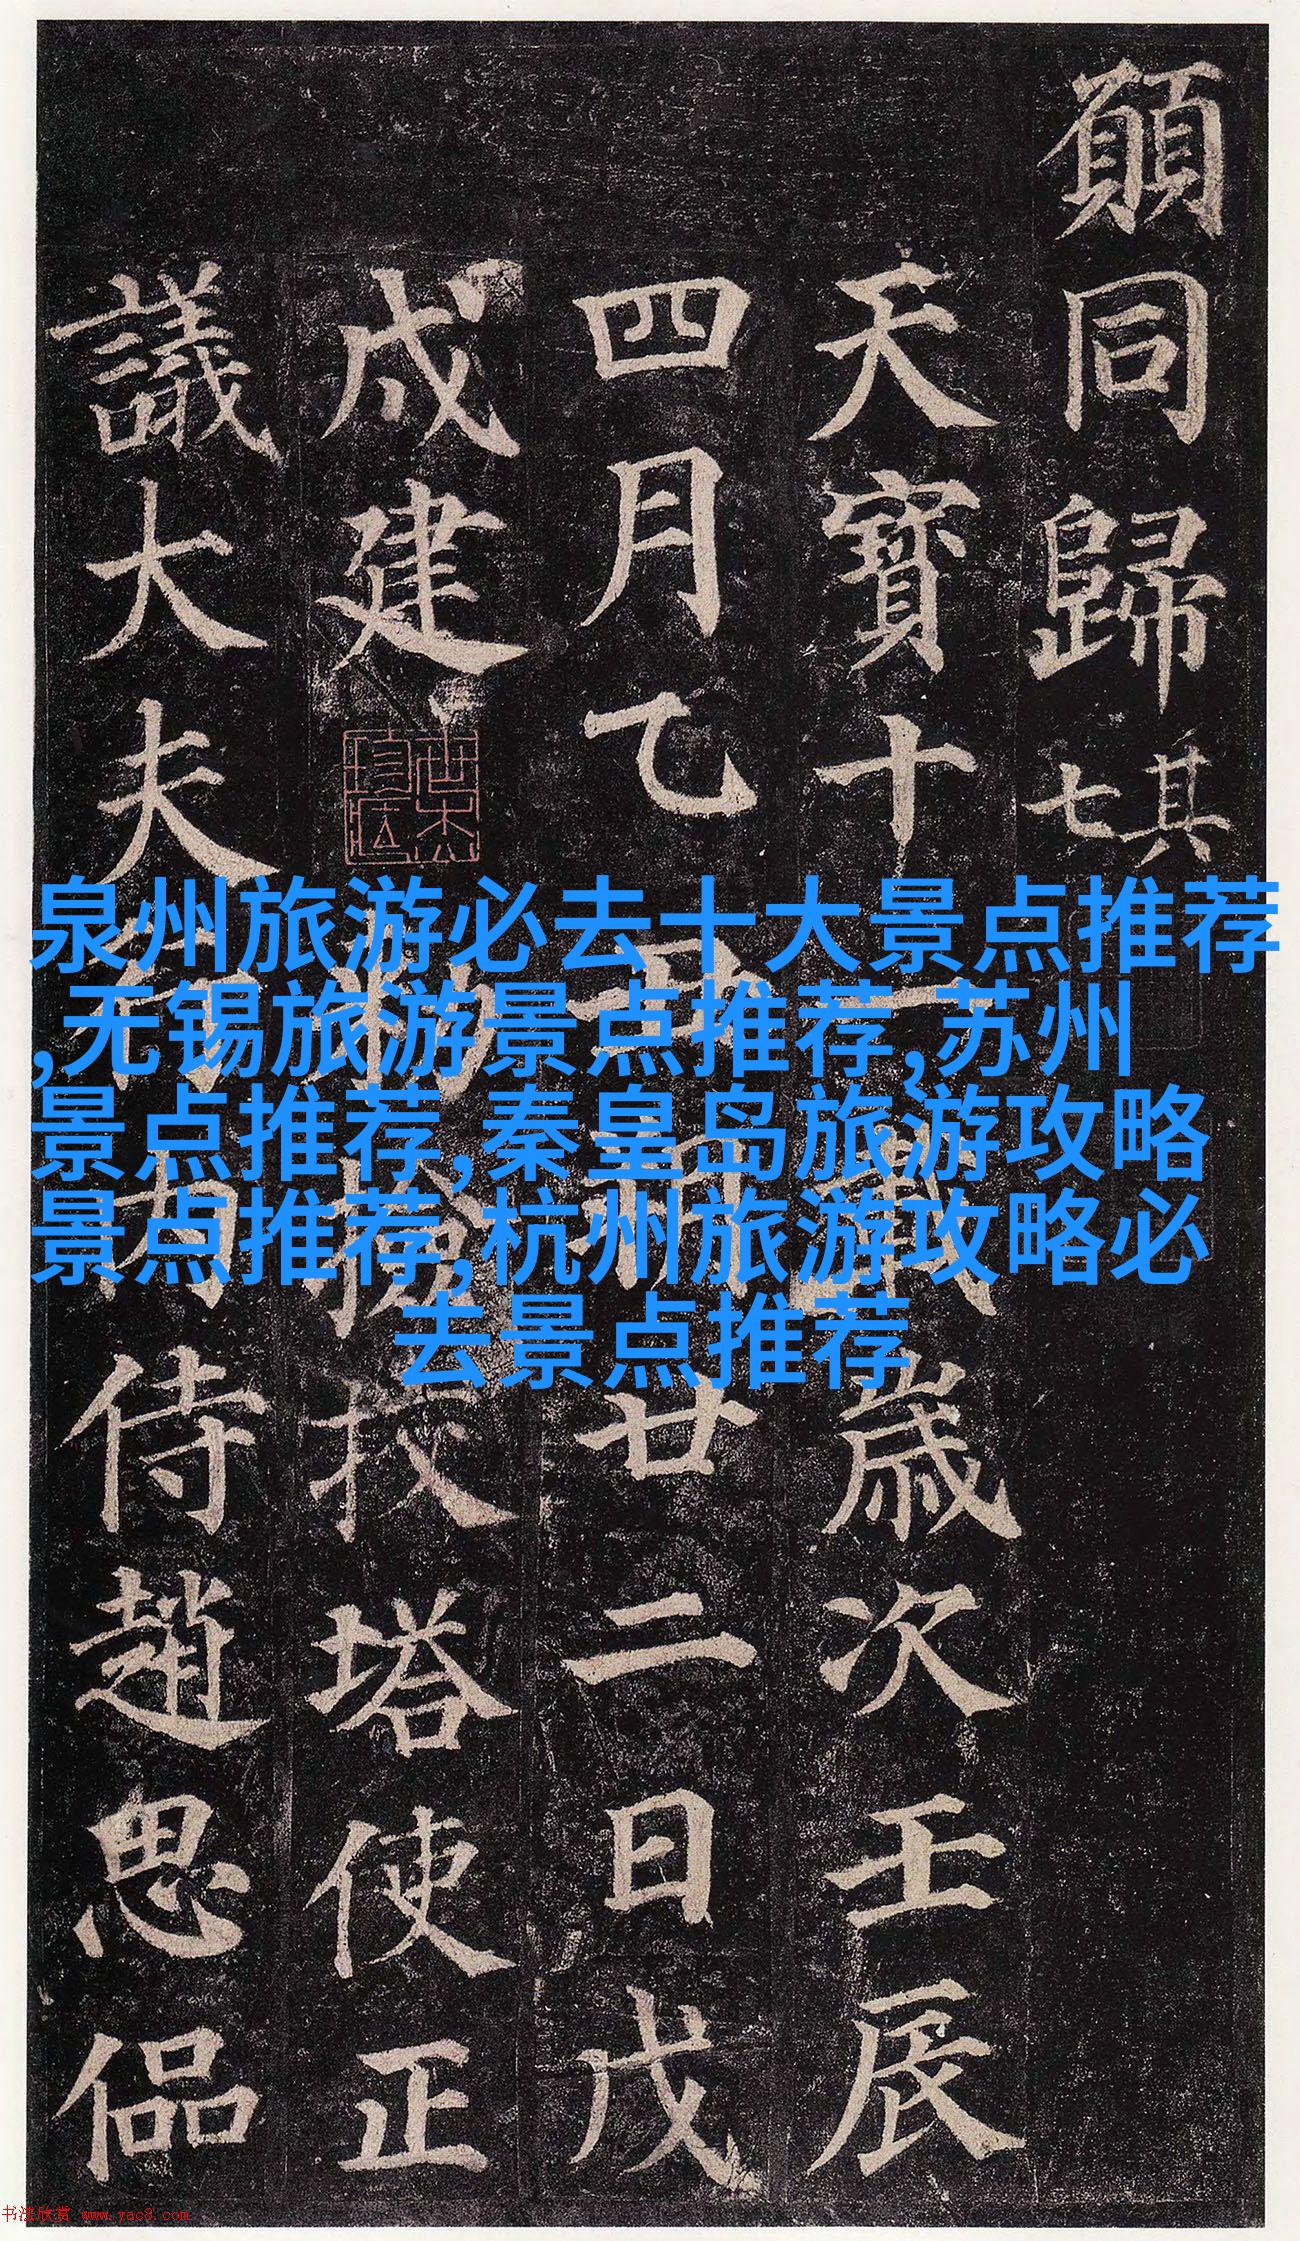 願同歸其七
天寶十一載歲次壬辰
四月乙丑朔廿二日戊
戌建勑檢校塔使正
議大夫行內侍趙思偘
泉州旅游必去十大景点推荐
,无锡旅游景点推荐,苏州
景点推荐,秦皇岛旅游攻略
景点推荐,杭州旅游攻略必
去景点推荐
书法欣赏 www.yac8.com